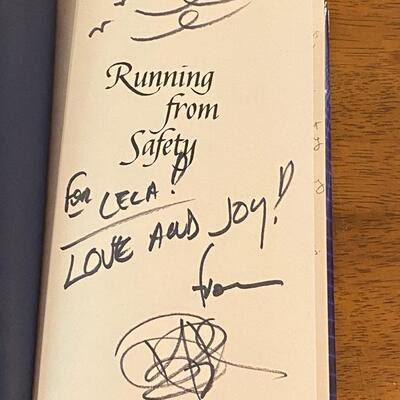 Running
from
Safety
For LELA!
LOVE AND JOY!
from